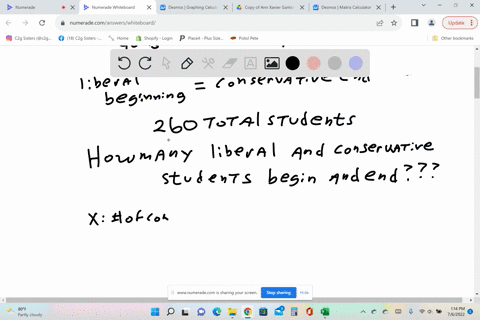 Numerade
Numerade Whiteboard
Desmos | Graphing Calculator
Copy of Ann Xavier Gantert
Desmos | Matrix Calculator
numerade.com/answers/whiteboard/
Update
C2g Sisters (@c2g...
(18) C2g Sisters
Home
Shopify - Login
Planet - Plus Size...
Pistol Pete
Other bookmarks
liberal = conservative end
beginning
260 TOTAL STUDENTS
HOW MANY liberal AND conservative
students begin AND end???
X: # of con
www.numerade.com is sharing your screen.
Stop sharing
Hide
Partly cloudy
1:14 PM
7/6/2022